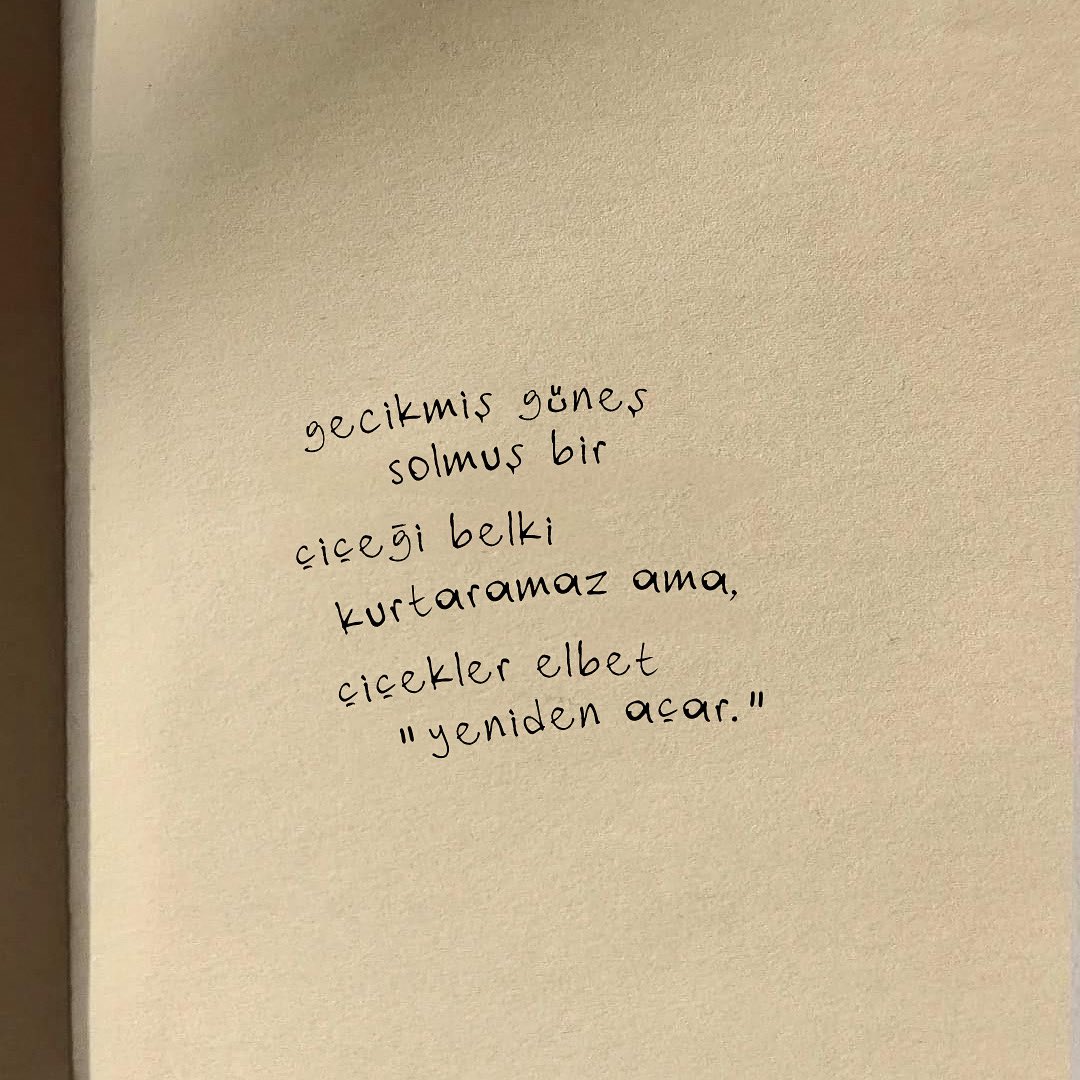 gecikmiş güneş
solmuş bir
çiçeği belki
kurtaramaz ama,
çiçekler elbet
"yeniden açar."